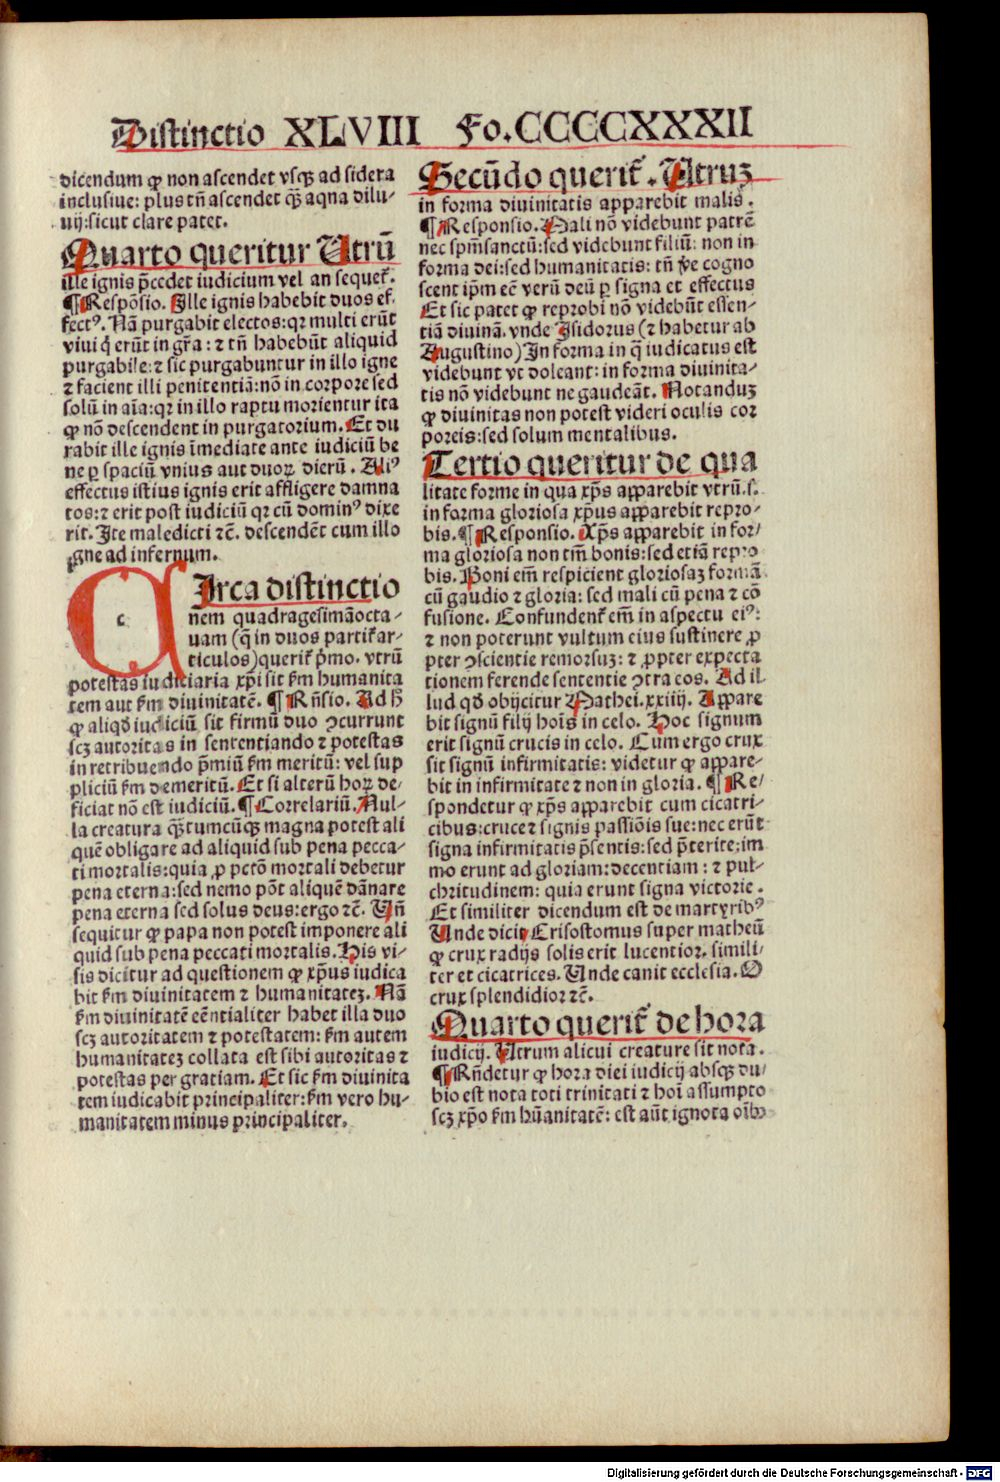 Distinctio XLVIII Fo.CCCCXXXII
dicendum ꝙ non ascendet vsqꝫ ad sidera
inclusiue: plus tñ ascendet qȝ̃ aqua dilu-
uij: sicut clare patet.
Quarto queritur Utrũ
ille ignis p̃cedet iudicium vel an sequet̃.
¶ Respõsio. Ille ignis habebit duos ef-
fectꝰ. Nã purgabit electos: qꝛ multi erũt
viui q̃ erũt in gr̃a: ⁊ tñ habebũt aliquid
purgabile: ⁊ sic purgabuntur in illo igne
⁊ facient illi penitentiã: nõ in corpore sed
solũ in aĩa: qꝛ in illo raptu morientur ita
ꝙ nõ descendent in purgatorium. Et du
rabit ille ignis ĩmediate ante iudiciũ be
ne ꝑ spaciũ vnius aut duoꝝ dierũ. Aliꝰ
effectus istius ignis erit affligere damna
tos: ⁊ erit post iudiciũ qꝛ cũ dominꝰ dixe
rit. Ite maledicti ⁊c̃. descendẽt cum illo
igne ad infernum.
CIrca distinctio
nem quadragesimãocta-
uam (q̃ in duos partit̃ ar-
ticulos) querit̃ p̃mo. vtrũ
potestas iudiciaria xp̃i sit ẜm humanita
tem aut ẜm diuinitatẽ. ¶ Rñsio. Ad h̃
ꝙ aliqd̃ iudiciũ sit firmũ duo ↄcurrunt
scꝫ autoritas in sententiando ⁊ potestas
in retribuendo p̃miũ ẜm meritũ: vel sup
pliciũ ẜm demeritũ. Et si alterũ hoꝝ de-
ficiat nõ est iudiciũ. ¶ Correlariũ. Nul-
la creatura qȝ̃tumcũqꝫ magna potest ali
quẽ obligare ad aliquid sub pena pecca-
ti mortalis: quia ꝓ pctõ mortali debetur
pena eterna: sed nemo põt aliquẽ dãnare
pena eterna sed solus deus: ergo ⁊c̃. Uñ
sequitur ꝙ papa non potest imponere ali
quid sub pena peccati mortalis. His vi-
sis dicitur ad questionem ꝙ xp̃us iudica
bit ẜm diuinitatem ⁊ humanitateꝫ. Nã
ẜm diuinitatẽ eẽntialiter habet illa duo
scꝫ autoritatem ⁊ potestatem: ẜm autem
humanitateꝫ collata est sibi autoritas ⁊
potestas per gratiam. Et sic ẜm diuinita
tem iudicabit principaliter: ẜm vero hu-
manitatem minus principaliter.
Secũdo querit̃. Utruꝫ
in forma diuinitatis apparebit malis.
¶ Responsio. Mali nõ videbunt patrẽ
nec spm̃sanctũ: sed videbunt filiũ: non in
forma dei: sed humanitatis: tñ ṽe cogno
scent ip̃m eẽ verũ deũ ꝑ signa et effectus
Et sic patet ꝙ reprobi nõ videbũt essen-
tiã diuinã. vnde Isidorus (⁊ habetur ab
Augustino) In forma in q̃ iudicatus est
videbunt vt doleant: in forma diuinita-
tis nõ videbunt ne gaudeãt. Notanduꝫ
ꝙ diuinitas non potest videri oculis cor
poreis: sed solum mentalibus.
Tertio queritur de qua
litate forme in qua xp̃s apparebit vtrũ. s.
in forma gloriosa xp̃us apparebit repro-
bis. ¶ Responsio. Xp̃s apparebit in for-
ma gloriosa non tm̃ bonis: sed etiã repro
bis. Boni em̃ respicient gloriosaꝫ formã
cũ gaudio ⁊ gloria: sed mali cũ pena ⁊ cõ
fusione. Confundent̃ em̃ in aspectu eiꝰ:
⁊ non poterunt vultum eius sustinere ꝓ
pter ↄscientie remorsuꝫ: ⁊ ꝓpter expecta
tionem ferende sententie ↄtra eos. Ad il-
lud qd̃ obijcitur Mathei. xxiiij. Appare
bit signũ filij hoĩs in celo. Hoc signum
erit signũ crucis in celo. Cum ergo crux
sit signũ infirmitatis: videtur ꝙ appare-
bit in infirmitate ⁊ non in gloria. ¶ Re-
spondetur ꝙ xp̃s apparebit cum cicatri-
cibus: cruce ⁊ signis passiõis sue: nec erũt
signa infirmitatis p̃sentis: sed p̃terite: im
mo erunt ad gloriam: decentiam: ⁊ pul-
chritudinem: quia erunt signa victorie.
Et similiter dicendum est de martyribꝰ
Unde dicit Crisostomus super matheũ
ꝙ crux radijs solis erit lucentior. simili-
ter et cicatrices. Unde canit ecclesia. O
crux splendidior ⁊c̃.
Quarto querit̃ de hora
iudicij. Utrum alicui creature sit nota.
¶ Rñdetur ꝙ hora diei iudicij absqꝫ du-
bio est nota toti trinitati ⁊ hoĩ assumpto
scꝫ xp̃o ẜm hũanitatẽ: est aũt ignota oĩbꝰ
c
Digitalisierung gefördert durch die Deutsche Forschungsgemeinschaft - DFG